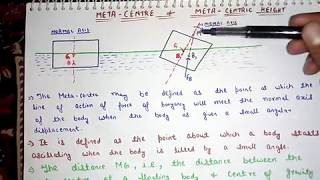 META-CENTRE & META-CENTRIC HEIGHT
NORMAL AXIS
NORMAL AXIS
G
B
G
B
B₁
FB
1) The Meta-centre may be defined as the point at which the
line of action of force of buoyancy will meet the normal axis
of the body when the body is given a small angular
displacement.
⇒ It is defined as the point about which a body starts
oscillating when the body is tilted by a small angle.
⇒ The distance MG, i.e., the distance between the
of a floating body & Centre of gravity